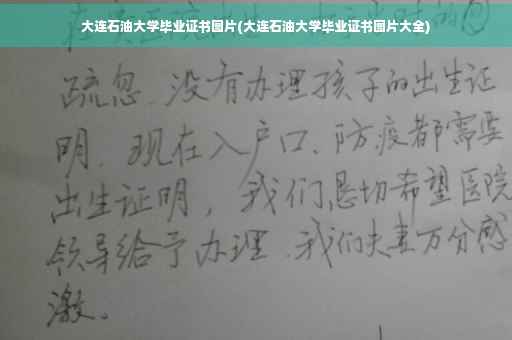 大连石油大学毕业证书图片(大连石油大学毕业证书图片大全)
疏忽、没有办理孩子的出生证
明、现在入户口、防疫都需要
出生证明，我们恳切希望医院
领导给予办理、我们夫妻万分感
激。